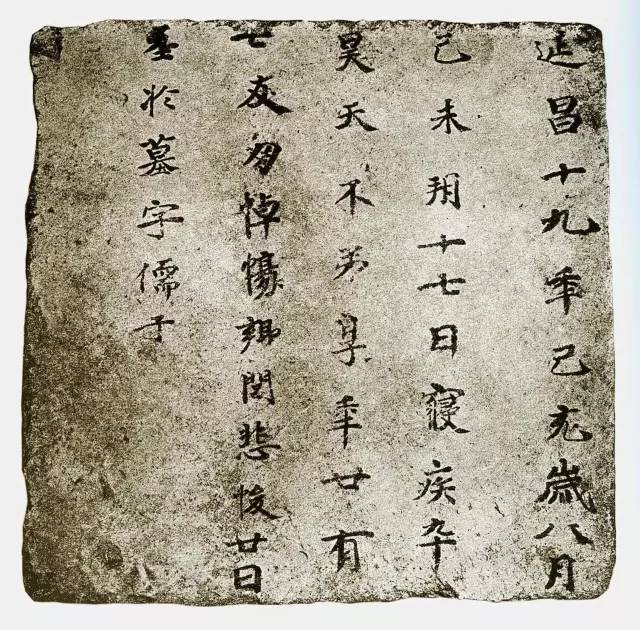 延昌十九年己亥歲八月
己未朔十七日寢疾卆
昊天不弔享年廿有
七友朋悼悲悛廿日
塟於墓字儒子